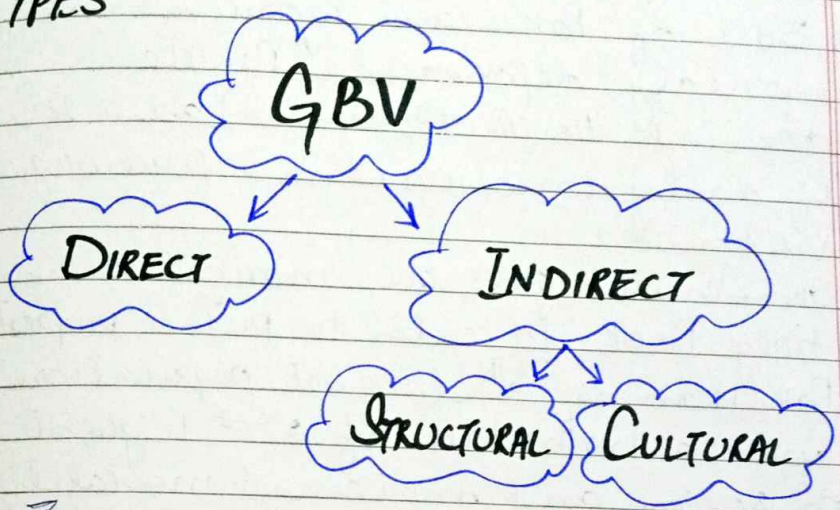 TYPES
GBV
DIRECT
INDIRECT
STRUCTURAL
CULTURAL